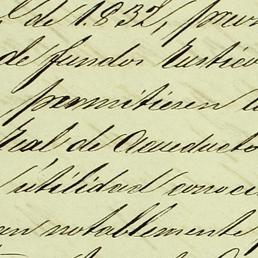 l de 1832, prev
de fundos rustico
permitieren la
Real de Acueducto
utilidad conoci
an notablemente